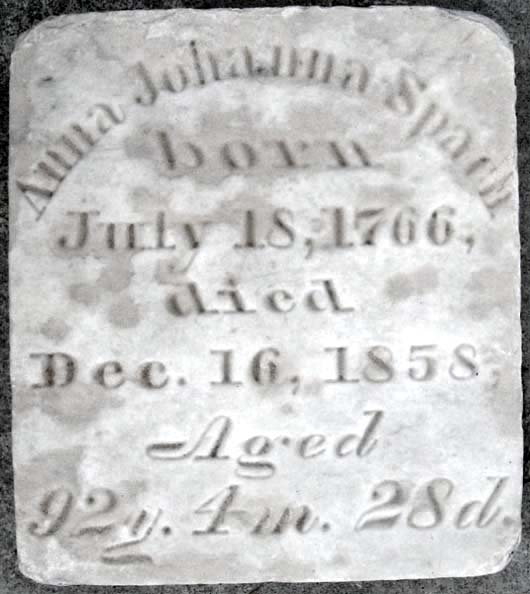 Anna Johanna Spach
born
July 18, 1766,
died
Dec. 16, 1858,
Aged
92y. 4m. 28d.